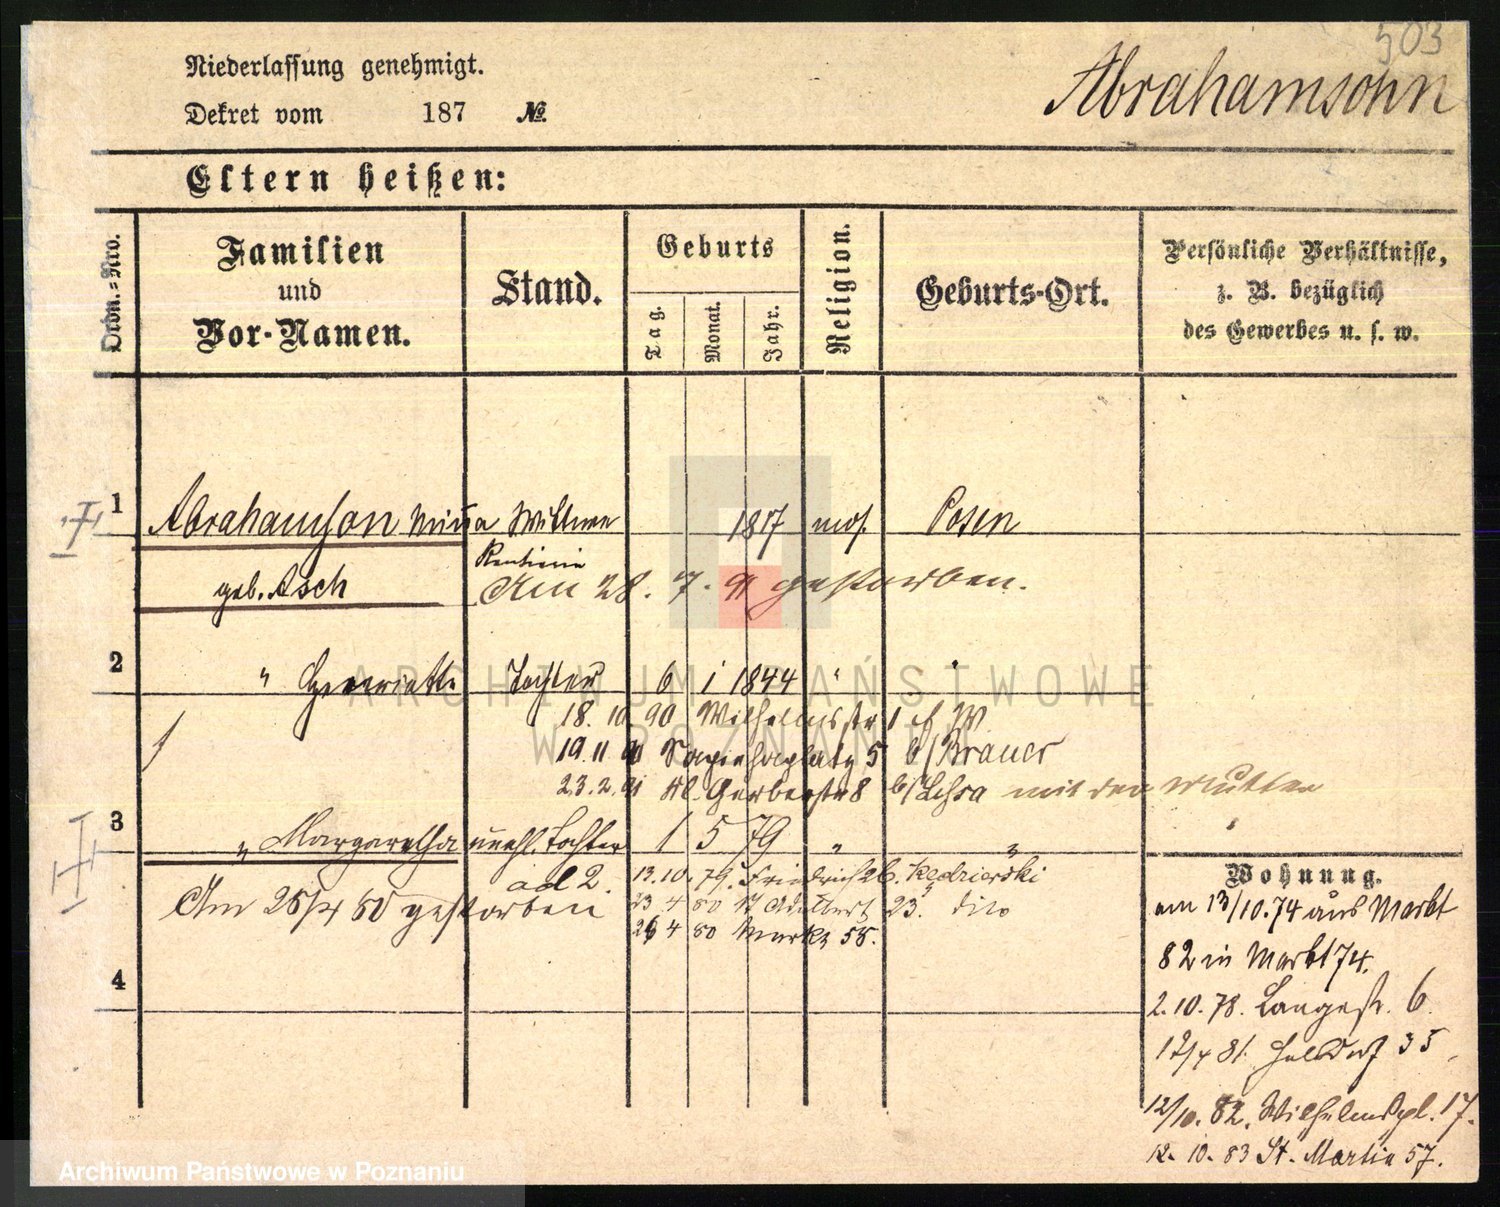 503
Niederlassung genehmigt.
Abrahamsohn
Dekret vom 187 №
Eltern heißen:
Ordn.-Nro.
Familien und Vor-Namen.
Stand.
Geburts
Tag. Monat. Jahr.
Religion.
Geburts-Ort.
Persönliche Verhältnisse, z. B. bezüglich des Gewerbes u. s. w.
1 Abrahamson Minna Wittwe 1817 mos. Posen
geb. Asch Rentiere
Am 28. 7. 91 gestorben.
2 " Henriette Tochter 6 1 1844 " "
18. 10. 90 Wilhelmsstr 1
19. 11 90 Sapiehaplatz 5 b/Brauer
23. 2. 91 Kl. Gerberstr 8 b/ mit der Mutter
3 " Margaretha unehl. Tochter 1 5 79 " "
ad 2.
13. 10. 79. Friedrichstr 26. Kedzierski
Am 26/4 80 gestorben
23 4 80 St Adalbert 23. dito
26 4 80 Markt 58.
4
Wohnung.
am 13/10. 74 aus Markt
82 in Markt 74.
2. 10. 78. Langestr. 6.
12/4 81. Halbdorf 35
12/10. 82. Wilhelmspl. 17.
12. 10. 83 St. Martin 57.
ARCHIWUM PAŃSTWOWE
W POZNANIU
Archiwum Państwowe w Poznaniu